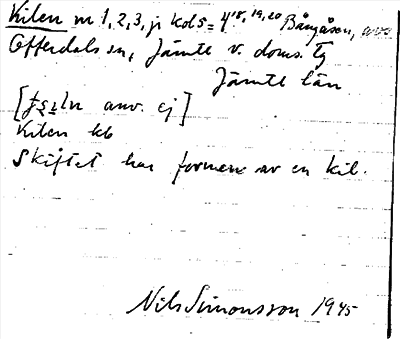 Kilen m 1, 2, 3, jr kols = 4 18, 19, 20 Bångåsen, avs
Offerdals sn, Jämtl v. doms. Tg
Jämtl län
anv. ej]
Kilen kb
Skiftet har formen av en kil.
Nils Simonsson 1945